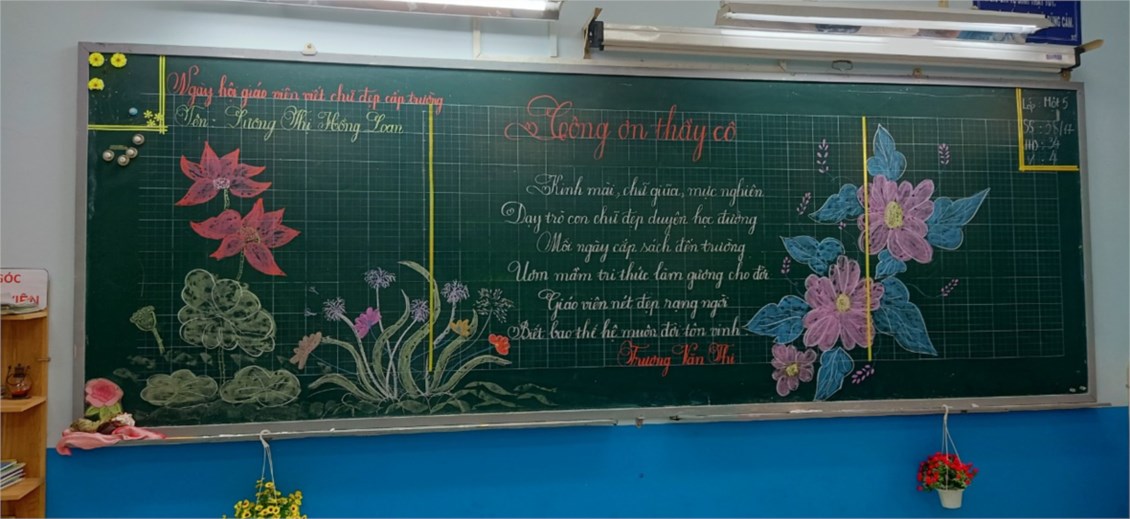 Ngày hội giáo viên viết chữ đẹp cấp trường
Tên: Lương Thị Hồng Loan
Công ơn thầy cô
Kính mài, chữ giữa, mực nghiên
Dạy trò con chữ đẹp duyên học đường
Mỗi ngày cắp sách đến trường
Ươm mầm tri thức làm gương cho đời
Giáo viên nét đẹp rạng ngời
Biết bao thế hệ muôn đời tôn vinh
Trương Văn Thi
Lớp: Một 5
SS:
HD: 34
V: 4
GÓC
VIÊN
DŨNG CẢM.